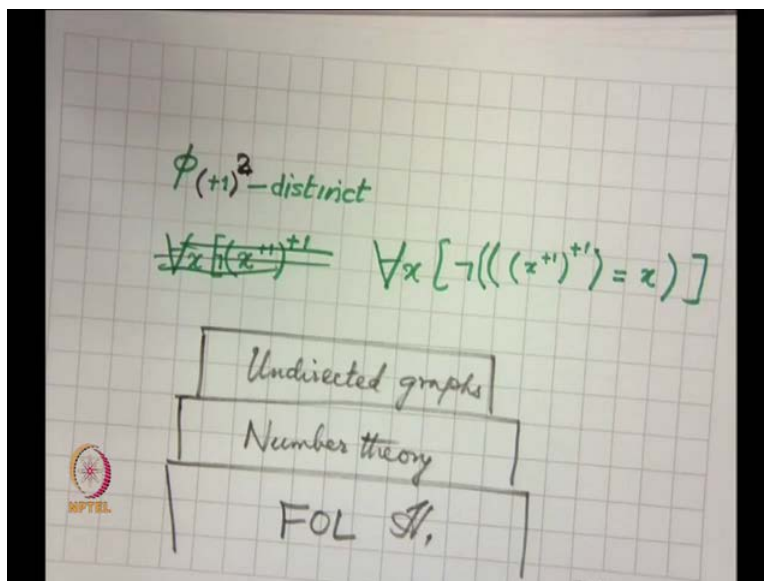 ϕ(+1)² - distinct
∀x [¬(((x⁺¹)⁺¹) = x)]
Undirected graphs
Number theory
FOL
NPTEL